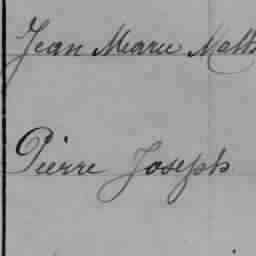 Jean Marie Math
Pierre Joseph